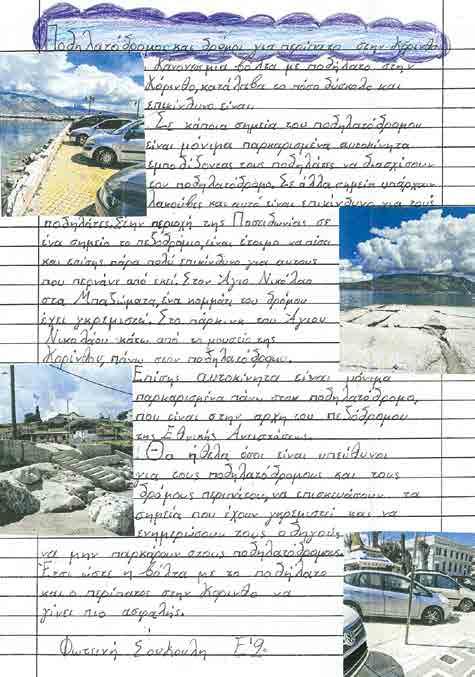 Ποδηλατόδρομος και δρόμοι για περίπατο στην Κόρινθο
Κάνοντας μια βόλτα με ποδήλατο στην
Κόρινθο, κατάλαβα το πόσο δύσκολο και
επικίνδυνο είναι.
Σε κάποια σημεία του ποδηλατόδρομου
είναι μόνιμα παρκαρισμένα αυτοκίνητα
εμποδίζοντας τους ποδηλάτες να διασχίσουν
τον ποδηλατόδρομο. Σε άλλα σημεία υπάρχουν
λακούβες και αυτό είναι επικίνδυνο για τούς
ποδηλάτες. Στην περιοχή της Ποσειδωνίας σε
ένα σημείο το πεζοδρόμιο, είναι έτοιμο να πέσει
και επίσης πάρα πολύ επικίνδυνο για αυτους
που περνάνε από εκεί. Στον Άγιο Νικόλαο
στα Μπαδώματα, ένα κομμάτι του δρόμου
έχει γκρεμιστεί. Στο πάρκινγκ του Άγιου
Νικολάου κάτω από το μουσείο της
Κορίνθου, πάνω στον ποδηλατόδρομο.
Επίσης αυτοκίνητα είναι μόνιμα
παρκαρισμένα πάνω στον ποδηλατόδρομο,
που είναι στην αρχή του πεζόδρομου
της Εθνικής Αντιστάσεως.
Θα ήθελα όσοι είναι υπεύθυνοι
για τους ποδηλατόδρομους και τους
δρόμους περιπάτου, να επισκευάσουν τα
σημεία που έχουν γκρεμιστεί και να
ενημερώσουν τους οδηγούς
να μην παρκάρουν στους ποδηλατόδρομους.
Έτσι ώστε η βόλτα με το ποδήλατο
και ο περίπατος στην Κόρινθο να
γίνει πιο ασφαλής.
Φωτεινή Σουκουλη Ε'2.